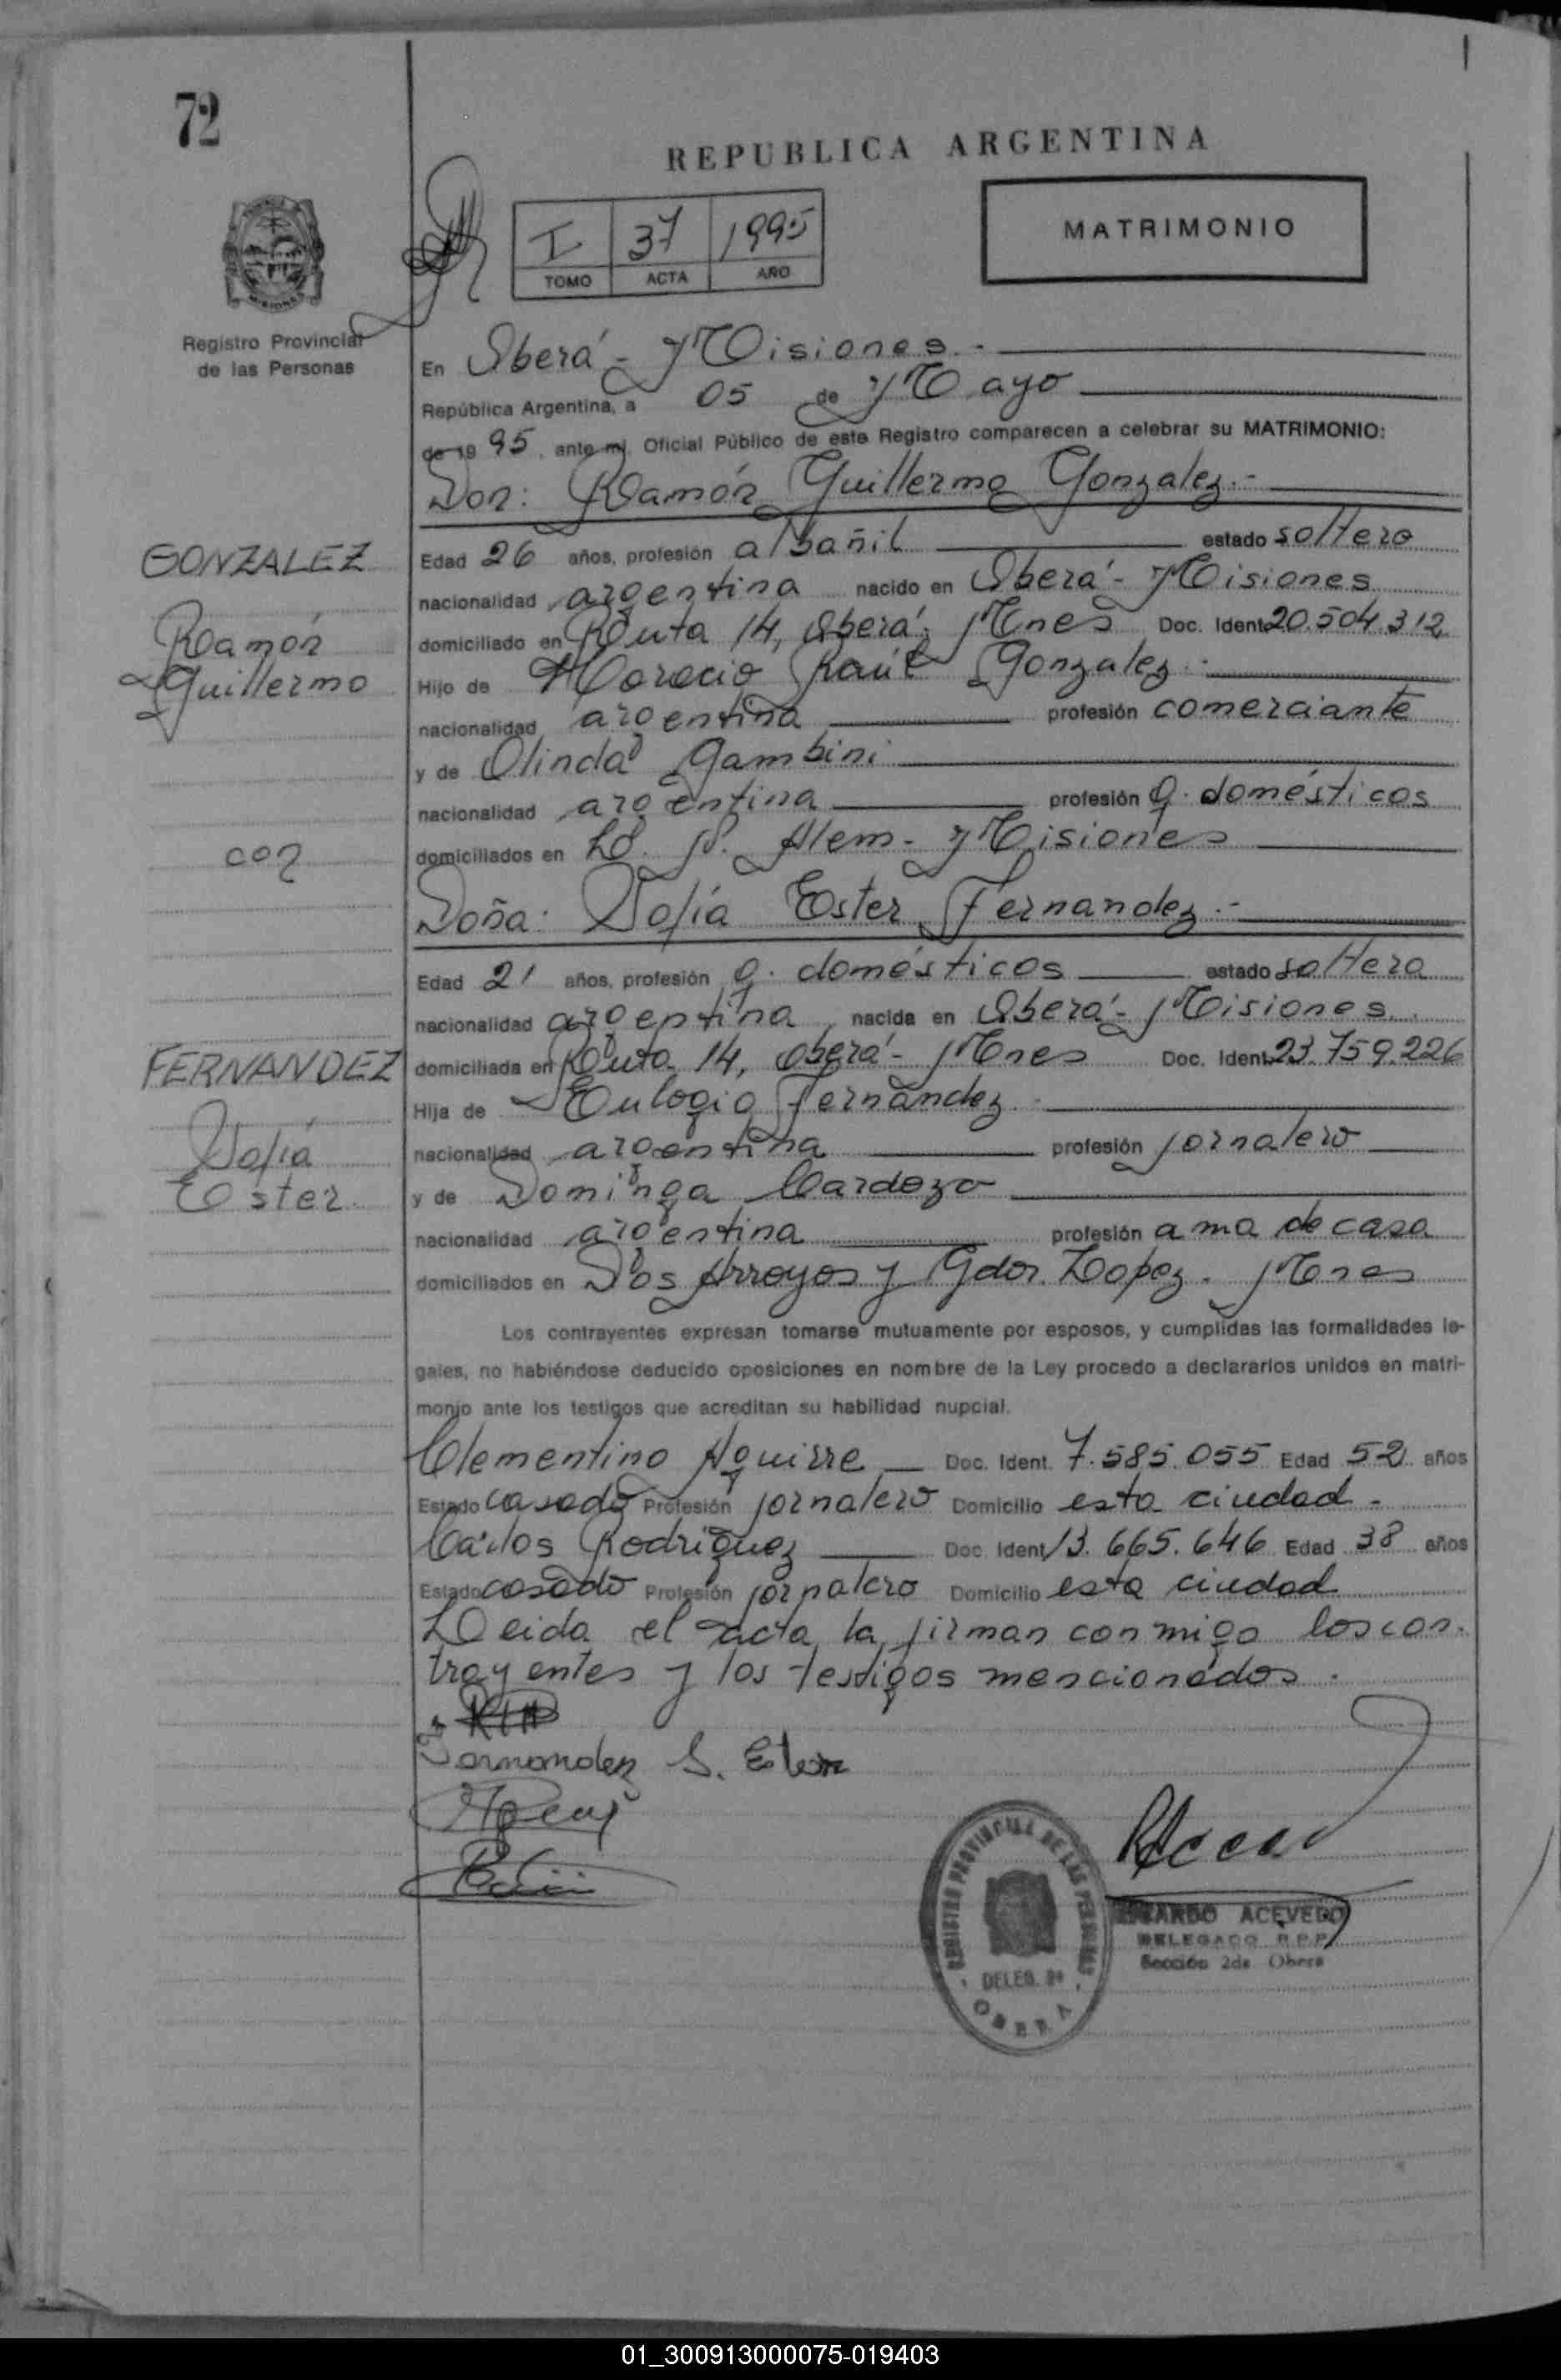 72
REPUBLICA ARGENTINA
I 37 1995
TOMO ACTA AÑO
MATRIMONIO
MISIONES
Registro Provincial
de las Personas
En Oberá - Misiones.-
República Argentina, a 05 de Mayo
de 19 95, ante mí, Oficial Público de este Registro comparecen a celebrar su MATRIMONIO:
Don: Ramón Guillermo Gonzalez.-
GONZALEZ
Ramón
Guillermo
Edad 26 años, profesión albañil estado soltero
nacionalidad argentina nacido en Oberá - Misiones
domiciliado en Ruta 14, Oberá, Mnes Doc. Ident. 20.504.312
Hijo de Horacio Raúl Gonzalez.-
nacionalidad argentina profesión comerciante
y de Olinda Gambini
nacionalidad argentina profesión q. domésticos
domiciliados en L. N. Alem - Misiones
con
Doña: Sofía Ester Fernandez.-
Edad 21 años, profesión q. domésticos estado soltera
nacionalidad argentina, nacida en Oberá - Misiones
FERNANDEZ
Sofía
Ester
domiciliada en Ruta 14, Oberá - Mnes Doc. Ident. 23.759.226
Hija de Eulogio Fernandez.-
nacionalidad argentina profesión jornalero
y de Dominga Cardozo
nacionalidad argentina profesión ama de casa
domiciliados en Dos Arroyos y Gdor. Lopez. Mnes
Los contrayentes expresan tomarse mutuamente por esposos, y cumplidas las formalidades le-
gales, no habiéndose deducido oposiciones en nombre de la Ley procedo a declararlos unidos en matri-
monio ante los testigos que acreditan su habilidad nupcial.
Clementino Aguirre Doc. Ident. 7.585.055 Edad 52 años
Estado casado Profesión jornalero Domicilio esta ciudad.
Carlos Rodriguez Doc. Ident. 13.665.646 Edad 38 años
Estado casado Profesión jornalero Domicilio esta ciudad
Leida el acta la firman conmigo los con-
trayentes y los testigos mencionados.
Fernandez S. Ester
REGISTRO PROVINCIAL DE LAS PERSONAS
DELEG. 2ª
OBERA
ACEVEDO
DELEGADO R.P.P.
Sección 2da Obera
01_300913000075-019403